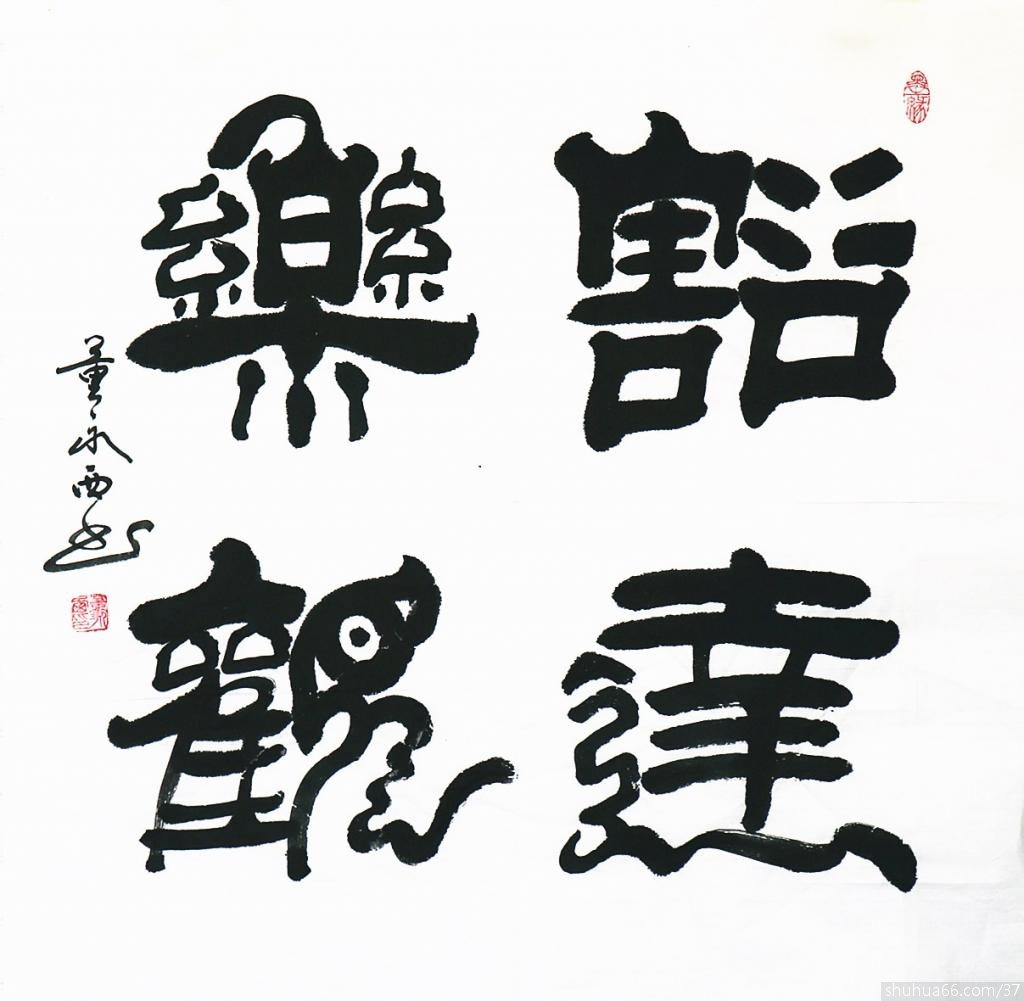 豁達
樂觀
董永西书
shuhua66.com/37